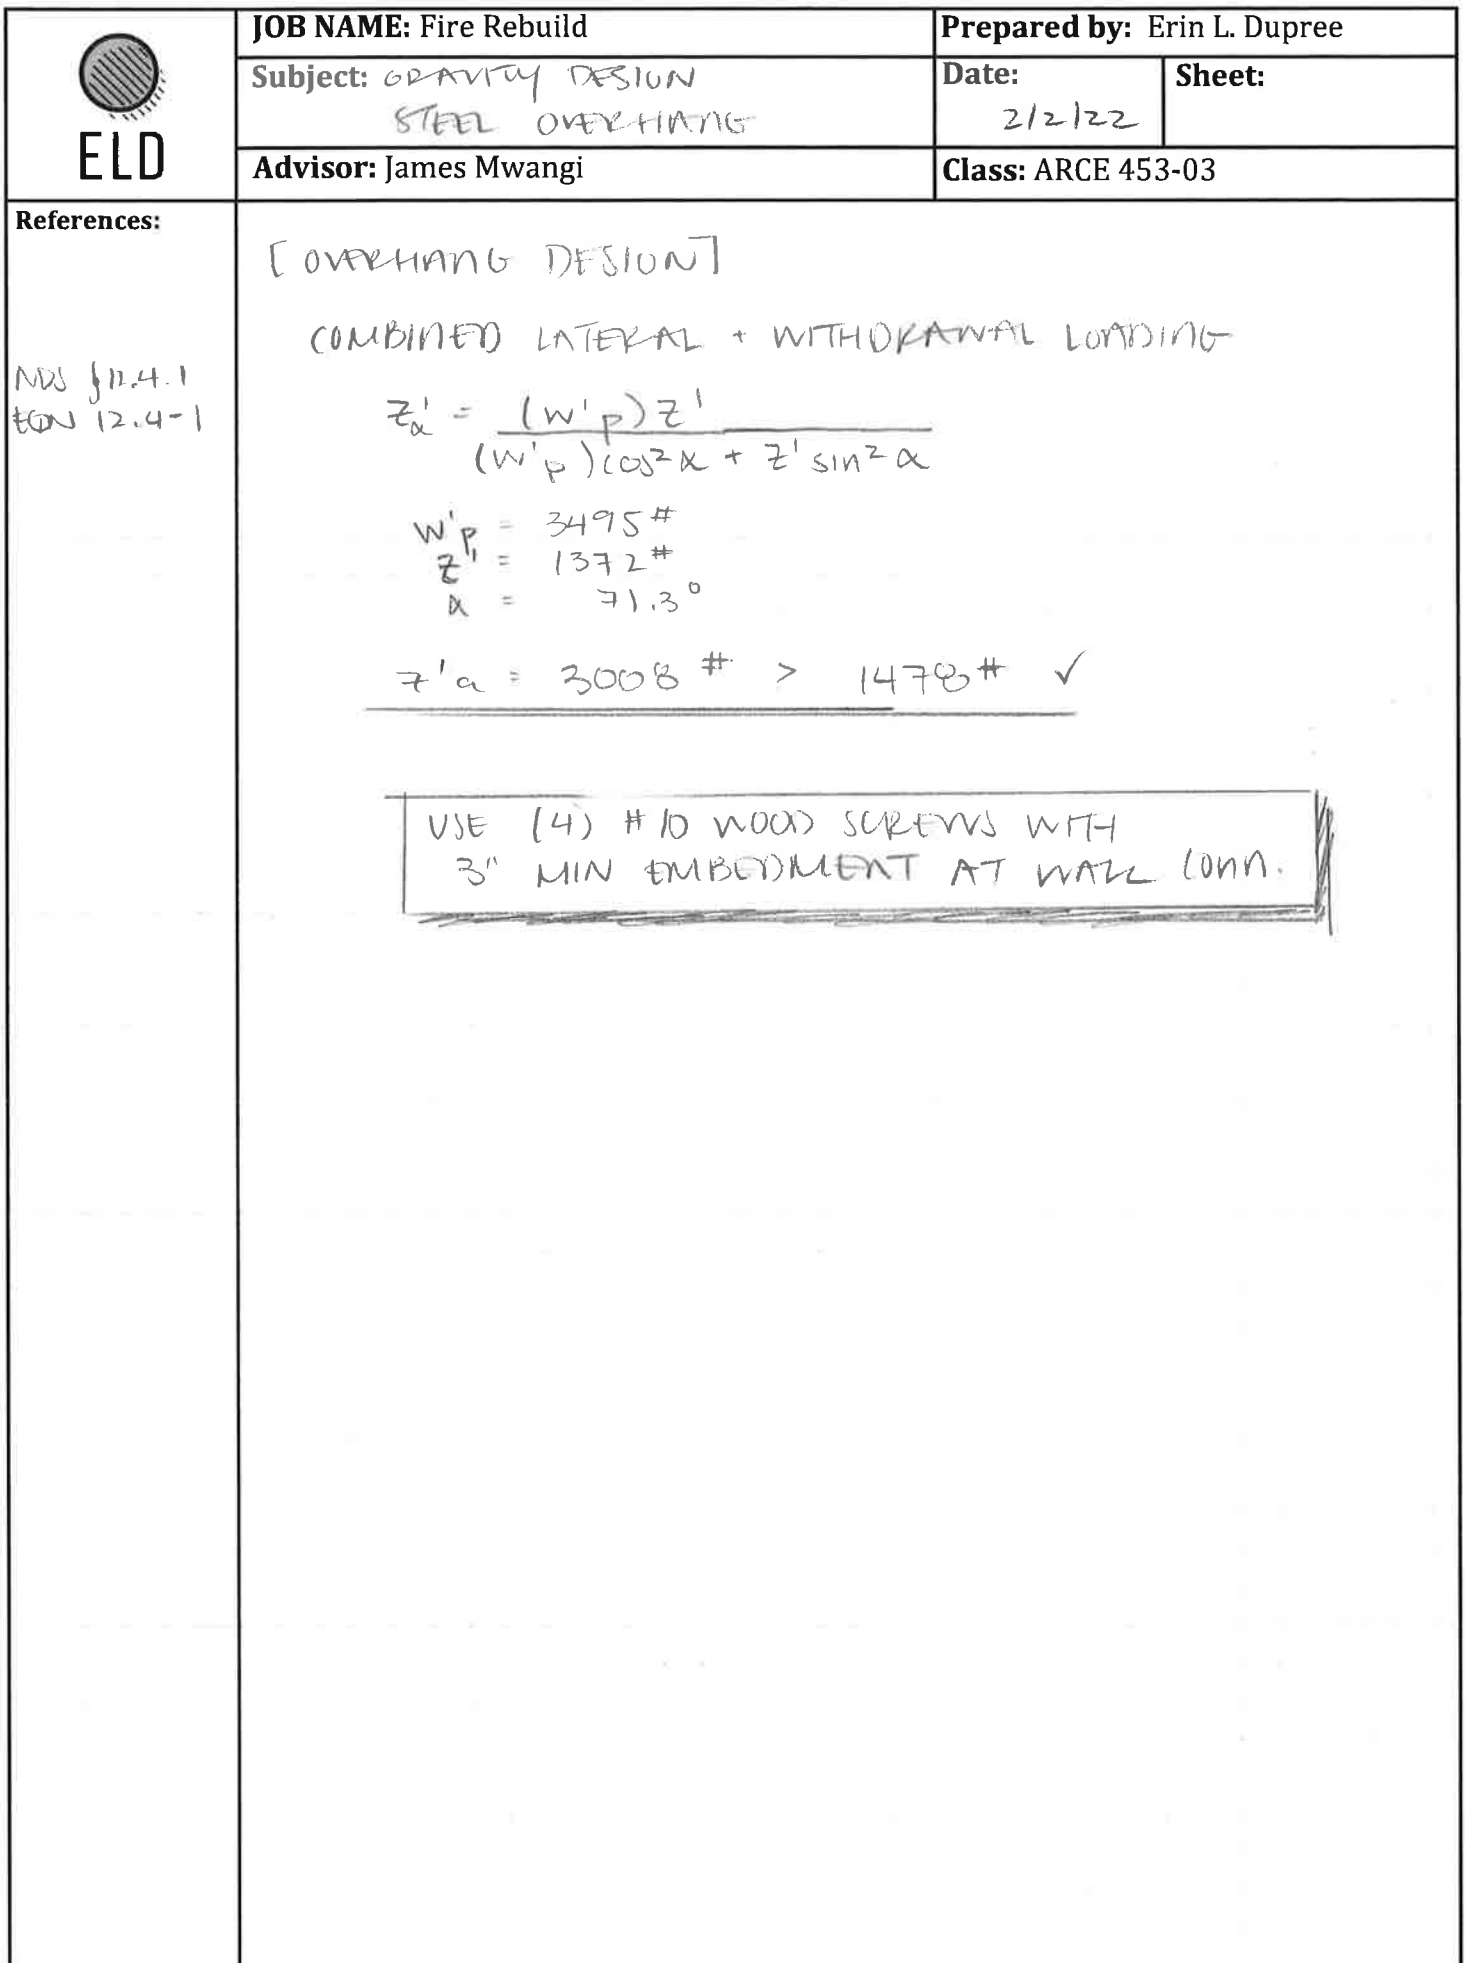 ELD
JOB NAME: Fire Rebuild
Prepared by: Erin L. Dupree
Subject: GRAVITY DESIGN
STEEL OVERHANG
Date:
2/2/22
Sheet:
Advisor: James Mwangi
Class: ARCE 453-03
References:
[OVERHANG DESIGN]
COMBINED LATERAL + WITHDRAWAL LOADING
NDS §12.4.1
EQN 12.4-1
Z'α = (W'p)Z'
(W'p)cos²α + Z' sin²α
W'p = 3495#
Z' = 1372#
α = 71.3°
Z'α = 3008# > 1478# ✓
USE (4) #10 WOOD SCREWS WITH
3" MIN EMBEDMENT AT WALL CONN.